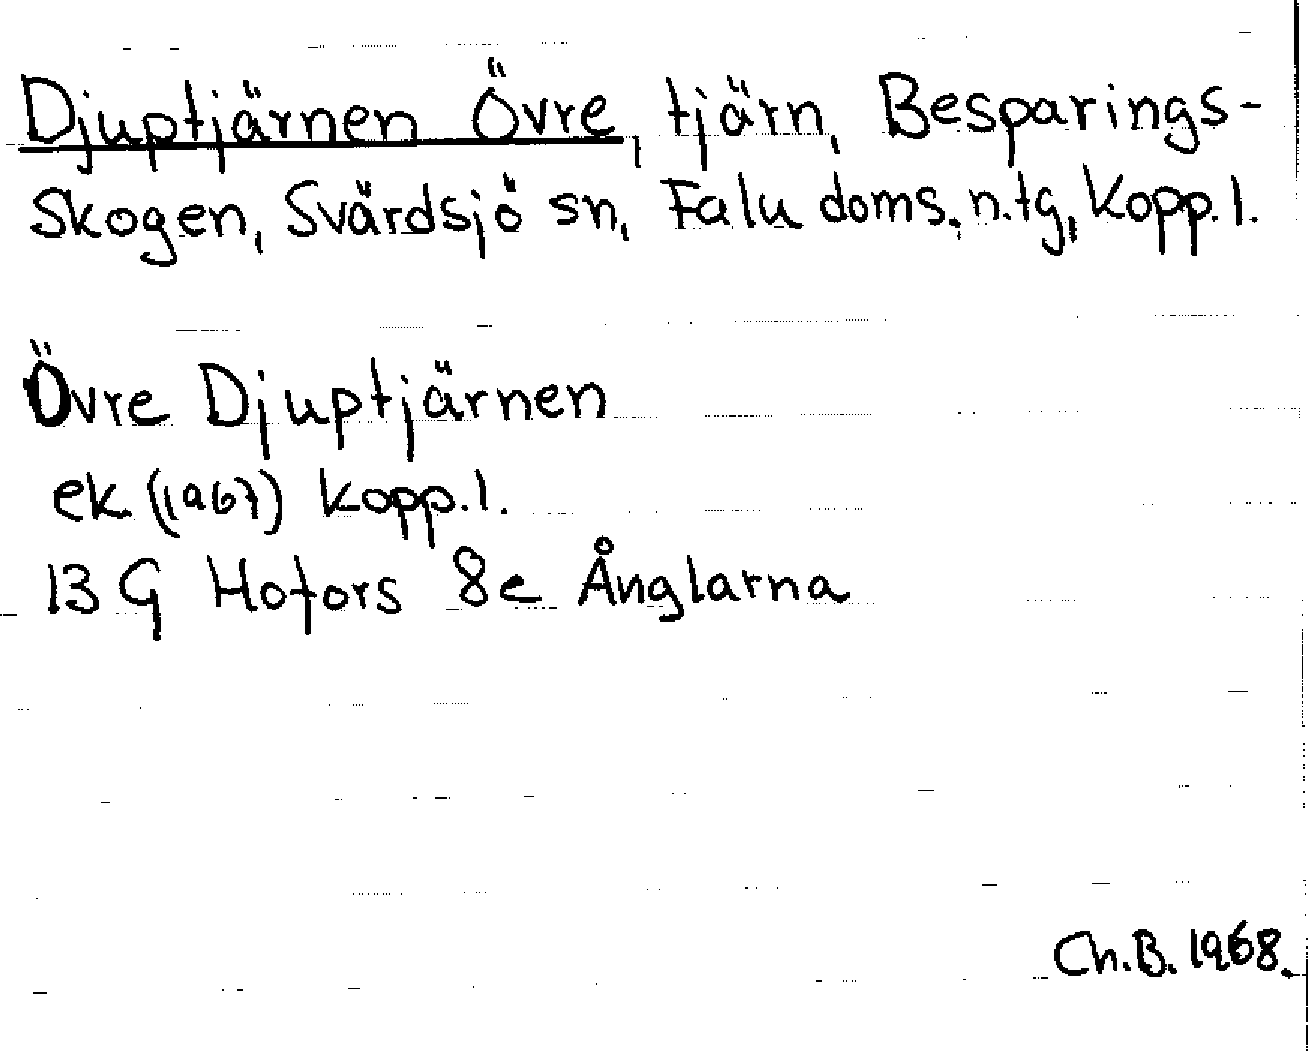 Djuptjärnen Övre, tjärn, Besparings-
Skogen, Svärdsjö sn, Falu doms. n. tg, Kopp. l.
Övre Djuptjärnen
ek (1967) Kopp. l.
13 G Hofors 8e Ånglarna
Ch. B. 1968.